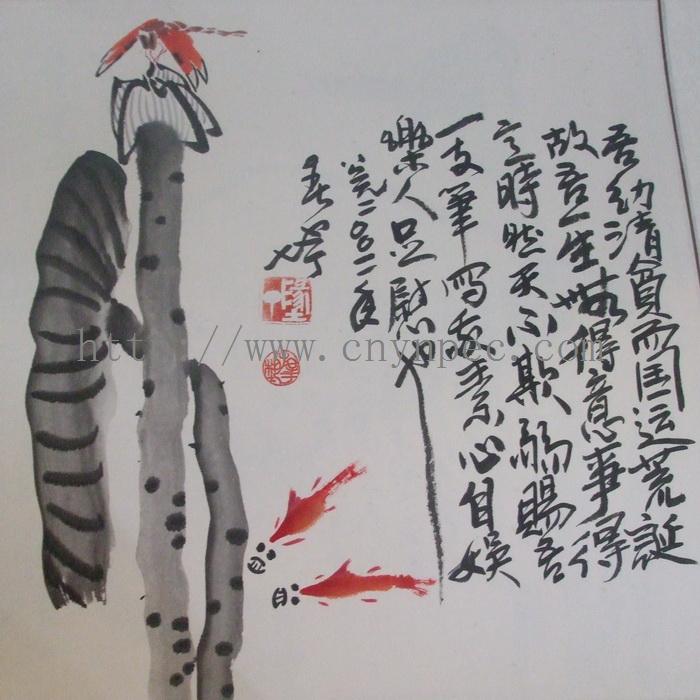 吾幼清貧而国运荒誕
故吾一生無得意事得
時然天不欺弱賜吾
一支筆寫吾素心自娱
樂人足慰也
公元二〇〇二年
http://www.cnynpec.com/